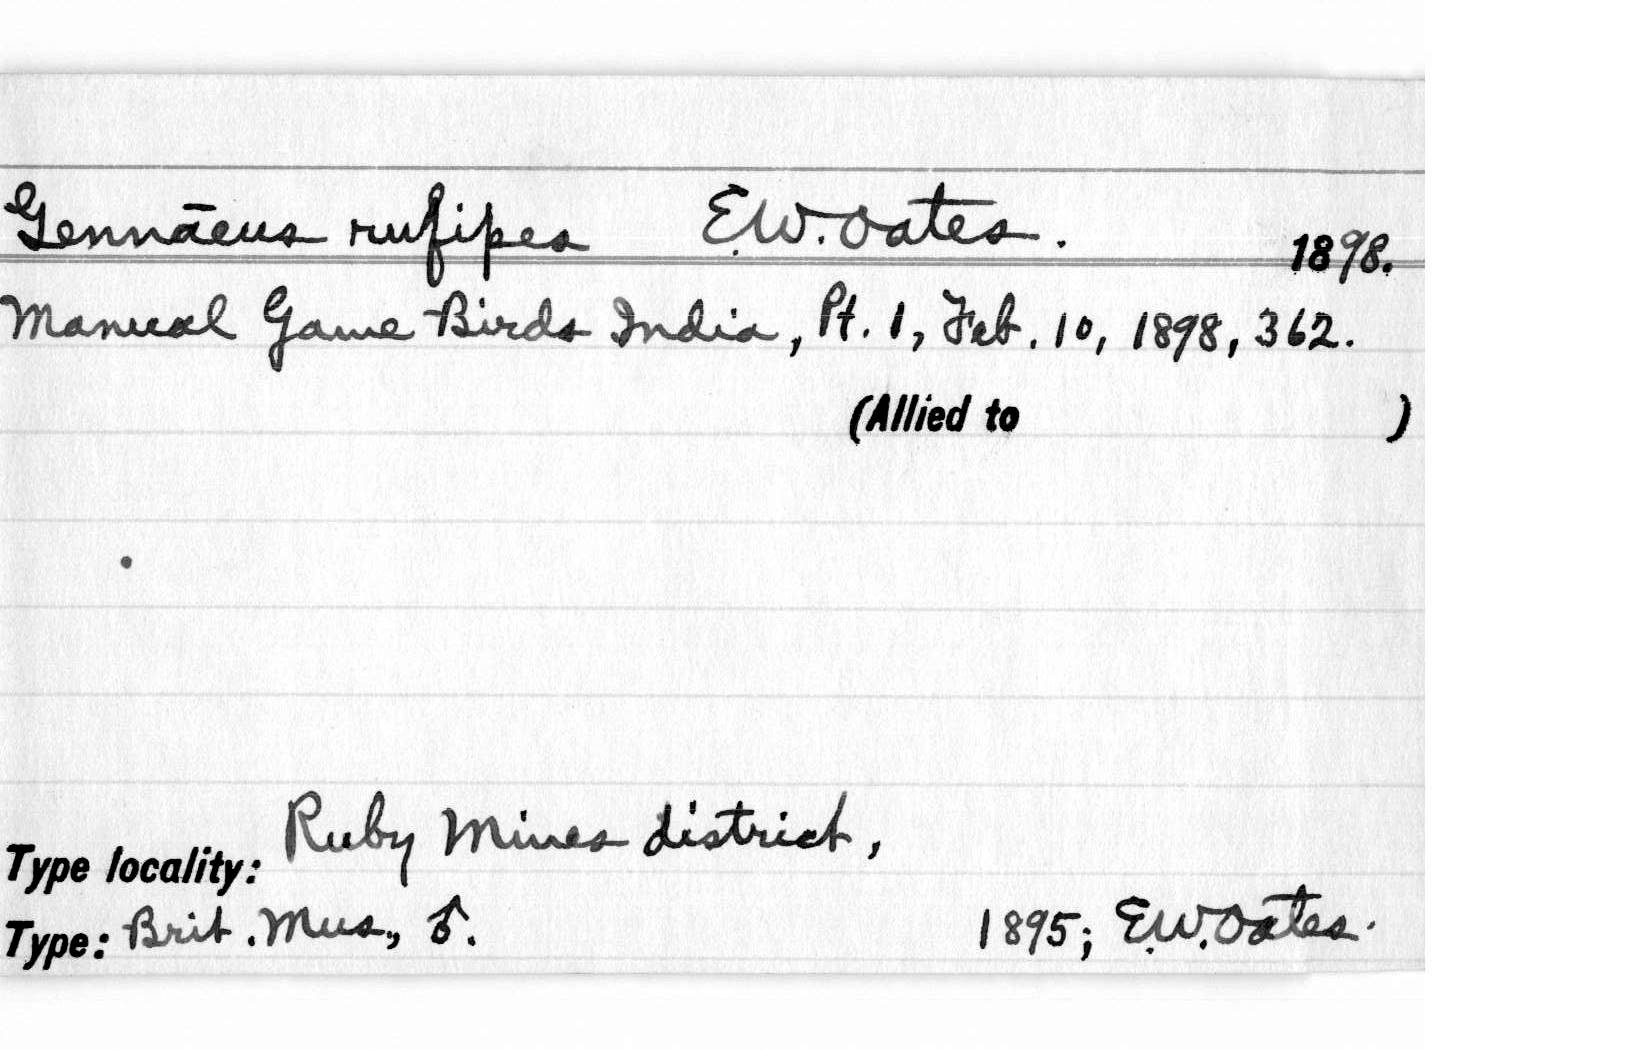 Gennāeus rufipes E.W. Oates. 1898.
Manual Game Birds India, Pt. 1, Feb. 10, 1898, 362.
(Allied to )
Type locality: Ruby Mines district,
Type: Brit. Mus., ♂. 1895; E.W. Oates.